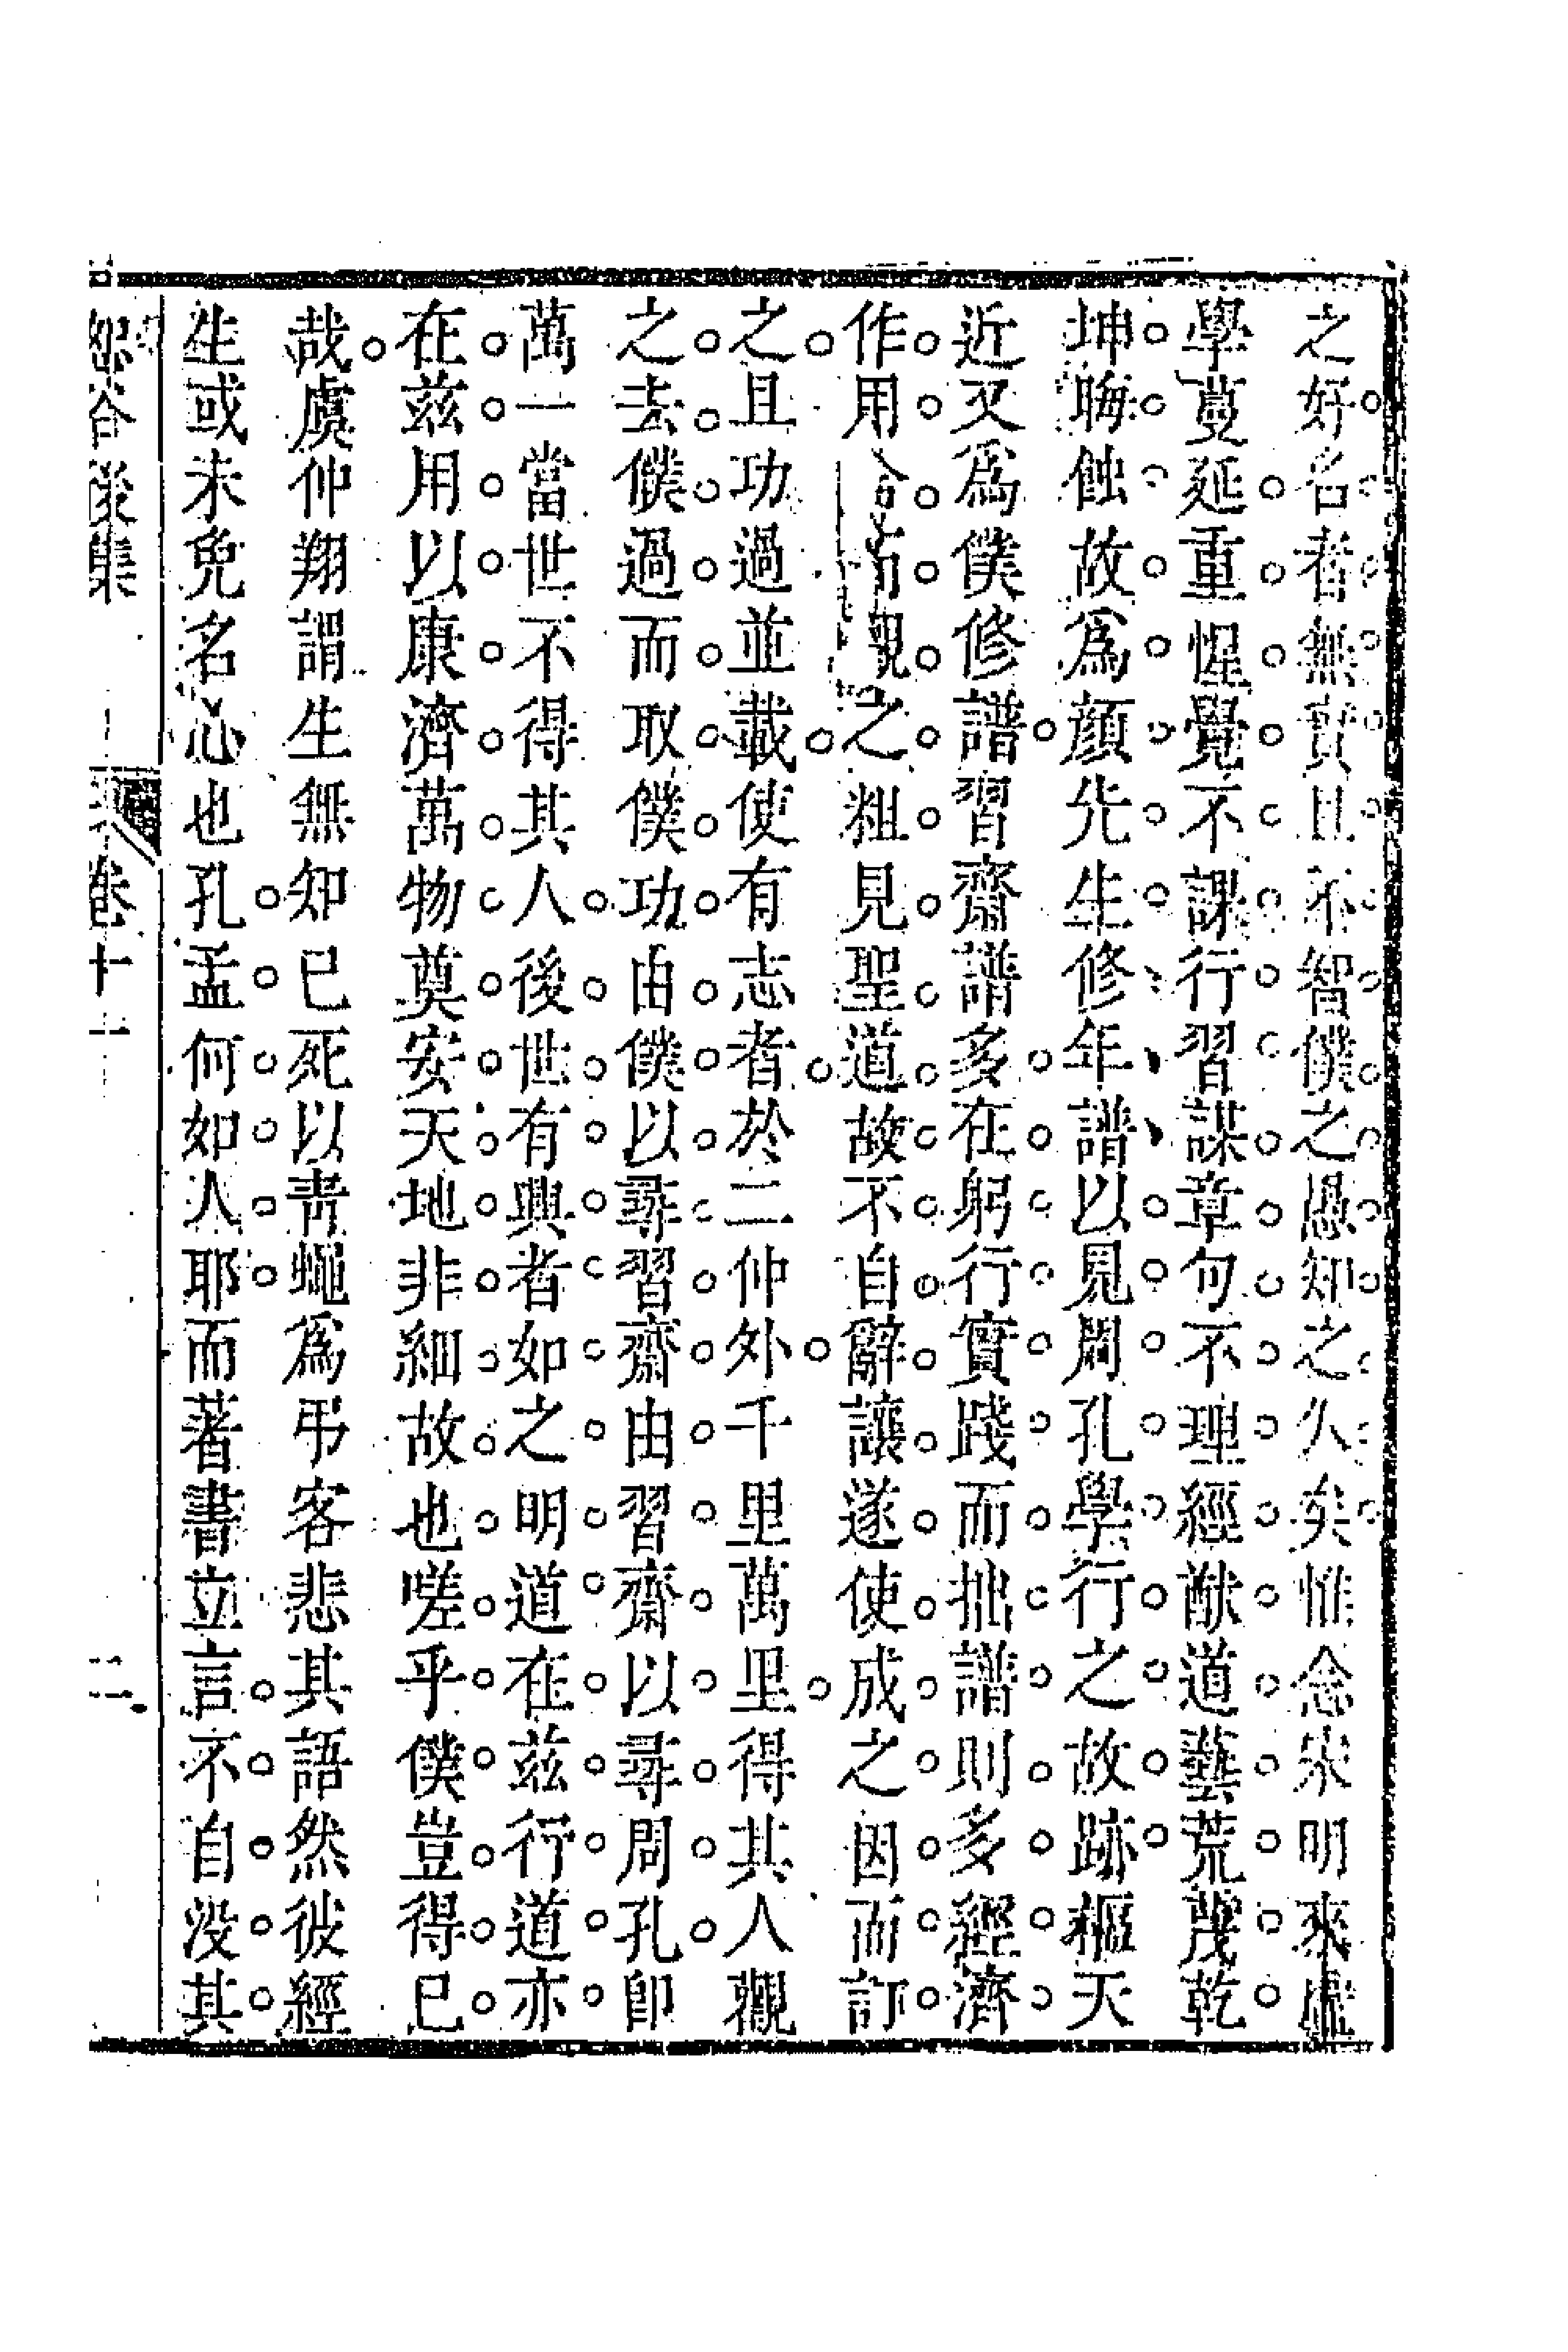 之好名者無實且不智僕之愚知之久矣惟念宋明來虛
學蔓延重惺覺不課行習謀章句不理經猷道藝荒茂乾
坤晦蝕故爲顏先生修年譜以見周孔學行之故跡樞天
近又爲僕修譜習齋譜多在躬行實踐而拙譜則多經濟
作用之粗見聖道故不自辭讓遂使成之因而訂
之且功過並載使有志者於二仲外千里萬里得其人觀
之去僕過而取僕功由僕以尋習齋由習齋以尋周孔即
萬一當世不得其人後世有興者如之明道在茲行道亦
在茲用以康濟萬物奠安天地非細故也嗟乎僕豈得已
哉虞仲翔謂生無知已死以靑蠅爲弔客悲其語然彼經
生或未免名心也孔孟何如人耶而著書立言不自沒其
恕谷後集 卷十一 二